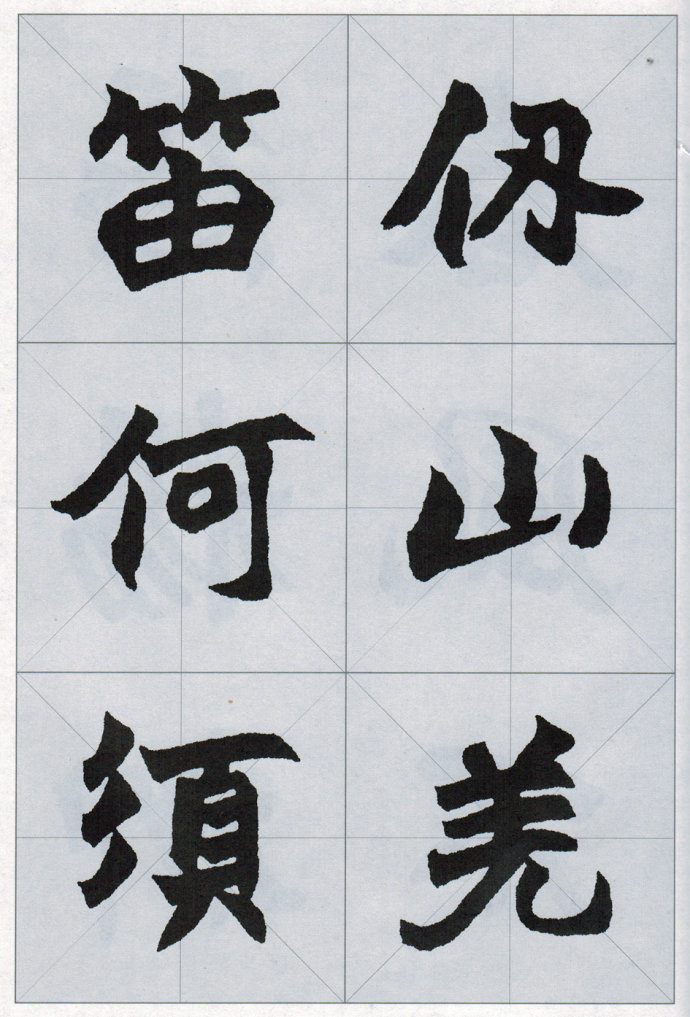 仞山羌
笛何須